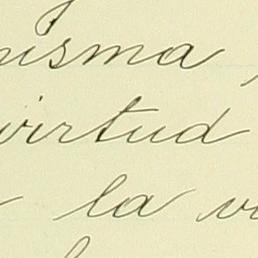 misma
virtud
la